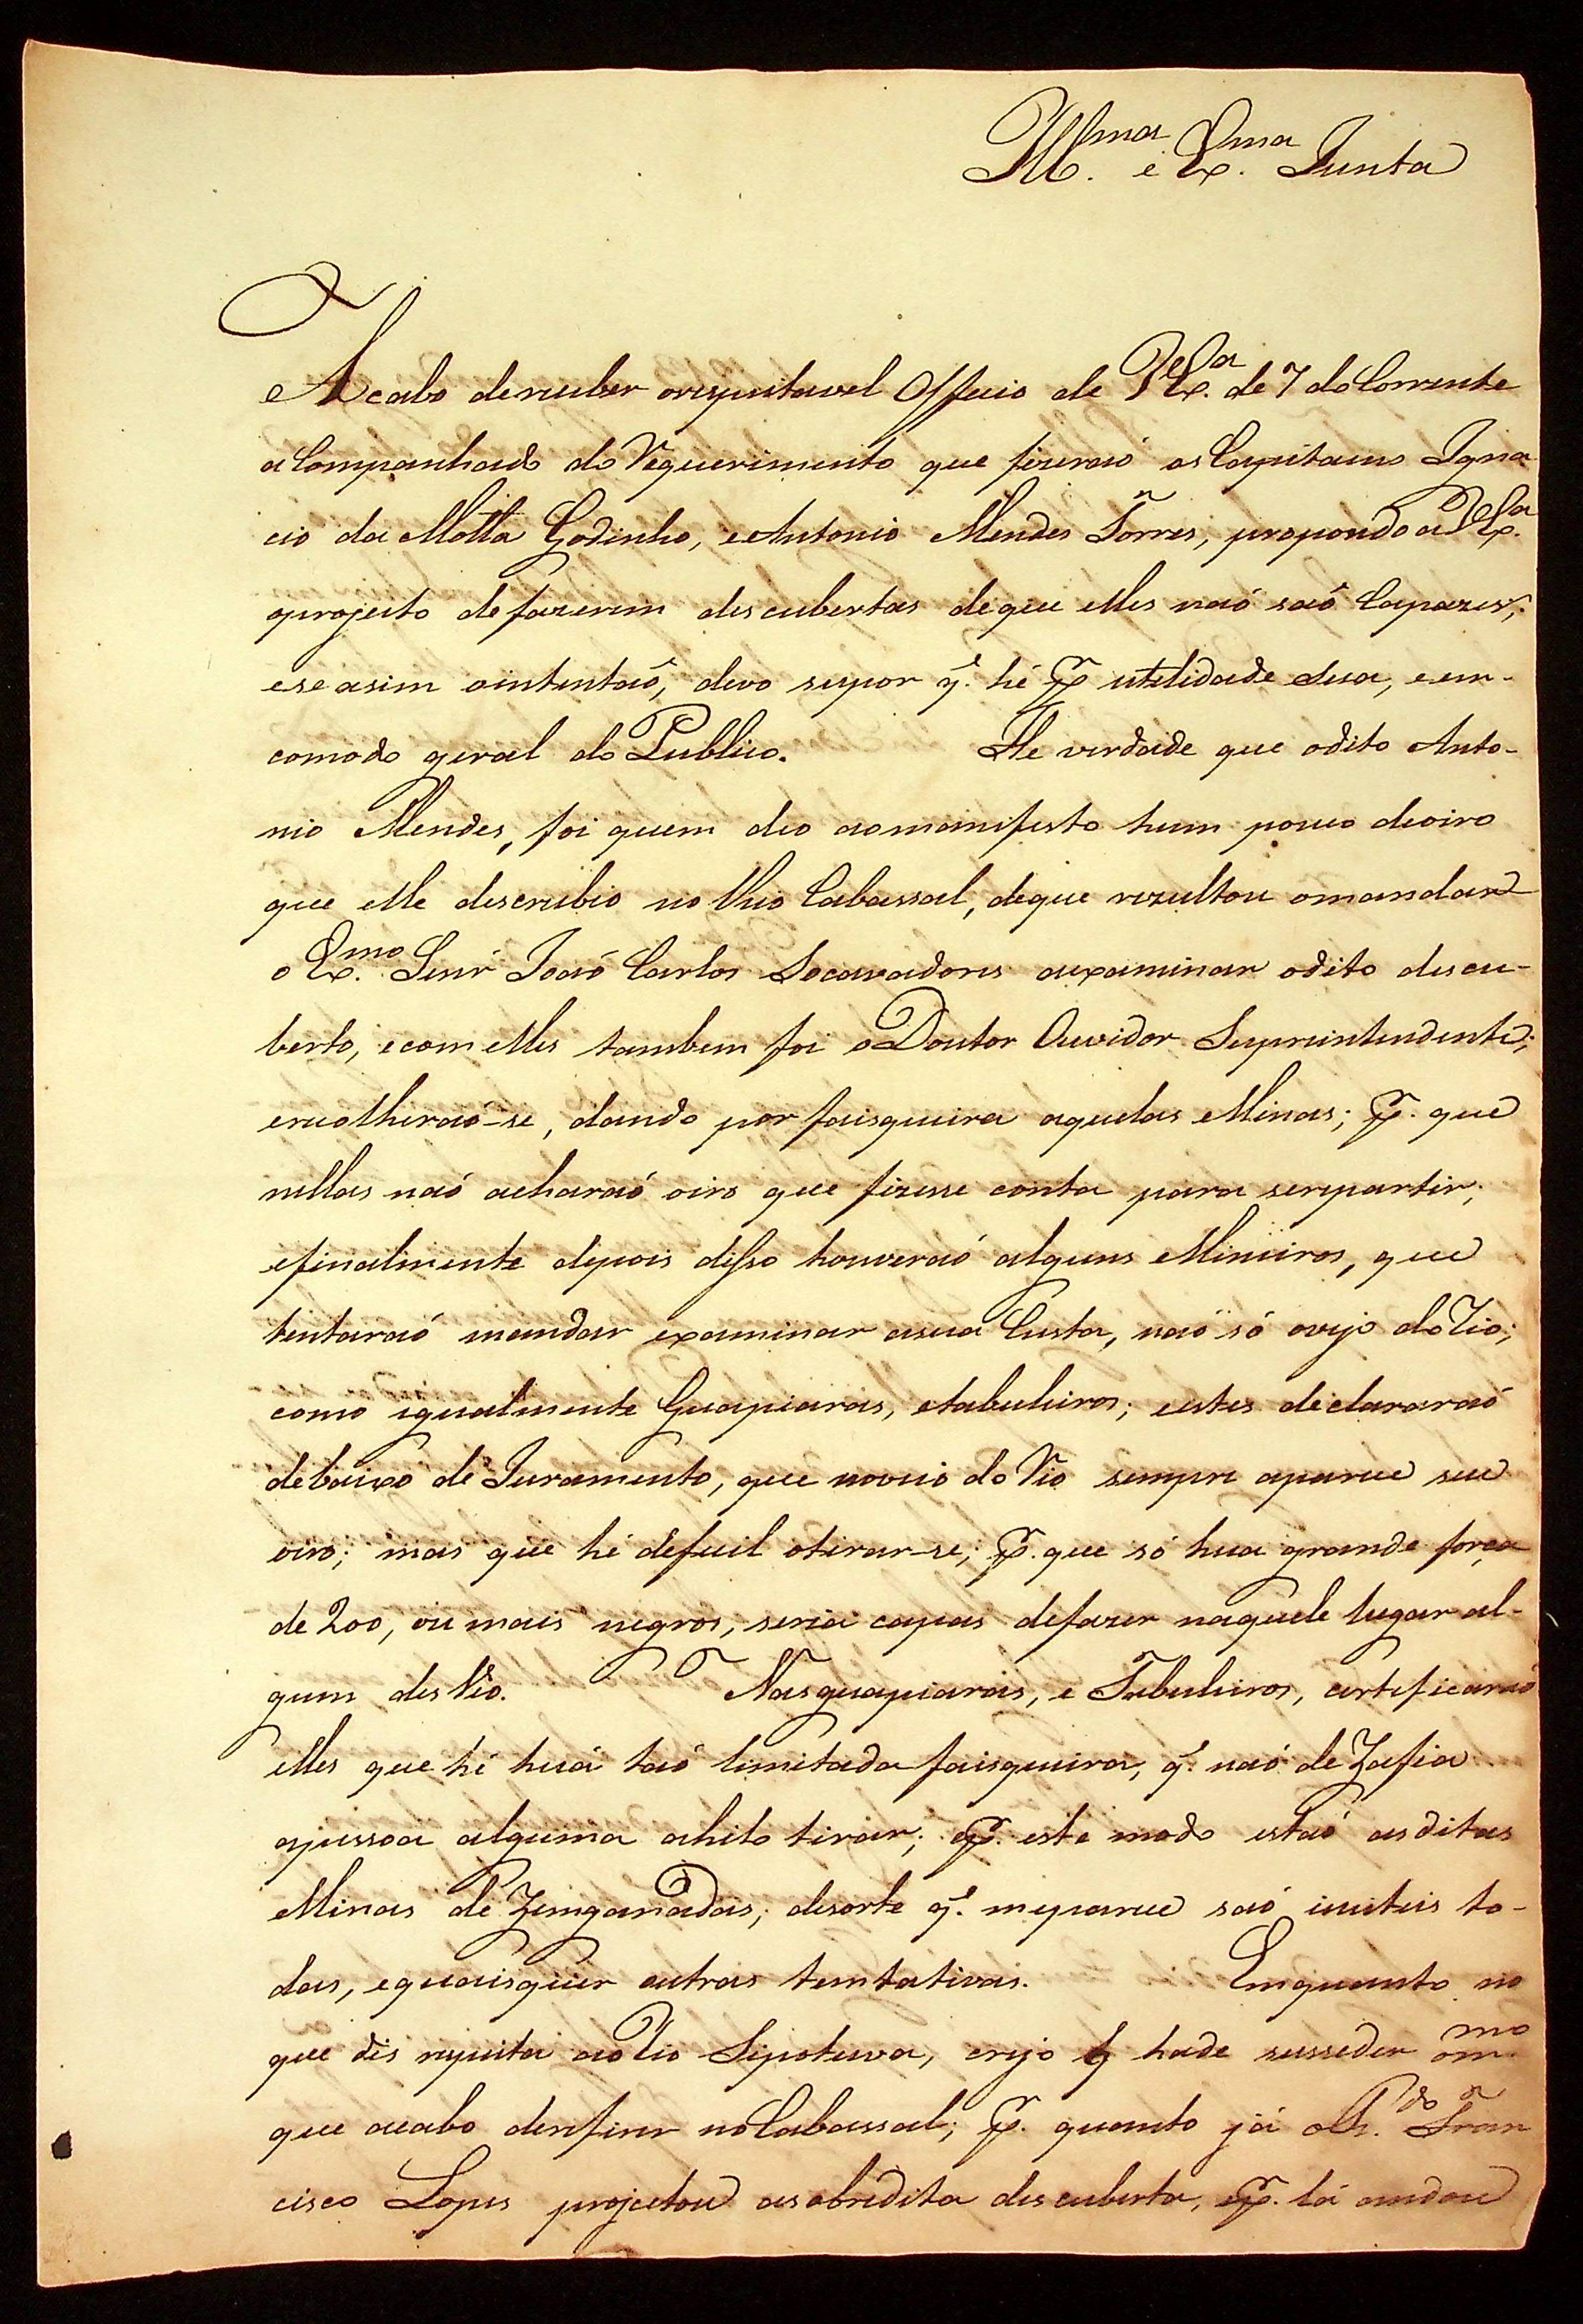 Ill.ma e Ex.ma Junta
Acabo dereceber orespeitavel Officio de V.Ex.ª de 7 do Corrente
aCompanhado do Requerimento que fizeraõ os Capitaens Igna
cio da Motta Godinho, eAntonio Mendes Torres, propondo a V.Ex.ª
oprojeito defazerem descubertas deque elles naõ saõ Capazes;
ese asim ointentaõ, devo supor q.̃ hé p.r utelidade sua, eem-
comodo geral do Publico. He verdade que odito Anto-
nio Mendes, foi quem deo aomanifesto hum pouco deoiro
que elle descrubio no Rio Cabassal, deque rezultou omandar
o Ex.mo Senr̃ Joaõ Carlos Socavadores aexaminar odito descu-
berto, ecom elles tambem foi oDoutor Ouvidor Supreintendente;
erecolheraõ-se, dando por faisqueira aquelas Minas; p.r que
nellas naõ acharaõ oiro que fizesse conta para serepartir;
efinalmente depois disso houveraõ alguns Mineiros, que
tentaraõ mandar examinar asua Custa, naõ só ovejo do Rio;
como igualmente Guapiaras, etabuleiros; eestes declararaõ
debaixo de Juramento, que noveio do Rio sempre aparece seu
oiro; mas que hé defecil otirar-se; p.r que só hua grande força
de 200, ou mais negros, seria capas defazer naquele lugar al-
gum desVio. Nasguapiaras, e Tabuleiros, certeficaraõ
elles que hé huã taõ limitada faisqueira, q.̃ naõ deZafia
apessoa alguma ahilo tirar; ep.r este modo estaõ asditas
Minas deZenganadas; desorte q.̃ meparece saõ inuteis to-
das, equaisquer outras tentativas. Emquanto no
que dis respeita aoRio Sipotuva, crejo q̃ hade susseder om.mo
que acabo dereferir noCabassal; p.r quanto já o R.do Fran
cisco Lopes projectou asobredita descuberta, ep.r lá andou